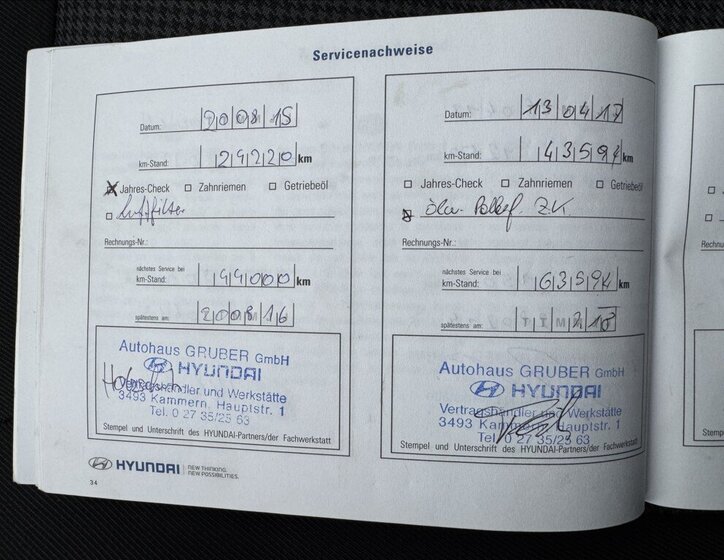 Servicenachweise
Datum: 200815
km-Stand: 29220 km
☒ Jahres-Check ☐ Zahnriemen ☐ Getriebeöl
☐ Luftfilter
Rechnungs-Nr.:
nächstes Service bei
km-Stand: 44000 km
spätestens am: 200816
Autohaus GRUBER GmbH
HYUNDAI
Vertragshändler und Werkstätte
3493 Kammern, Hauptstr. 1
Tel. 0 27 35/25 63
Stempel und Unterschrift des HYUNDAI-Partners/der Fachwerkstatt
HYUNDAI NEW THINKING.
NEW POSSIBILITIES.
34
Datum: 130417
km-Stand: 43594 km
☐ Jahres-Check ☐ Zahnriemen ☐ Getriebeöl
☒ Pollenf. Z.K.
Rechnungs-Nr.:
nächstes Service bei
km-Stand: 63594 km
spätestens am:
Autohaus GRUBER GmbH
HYUNDAI
Vertragshändler und Werkstätte
3493 Kammern, Hauptstr. 1
Tel. 0 27 35/25 63
Stempel und Unterschrift des HYUNDAI-Partners/der Fachwerkstatt